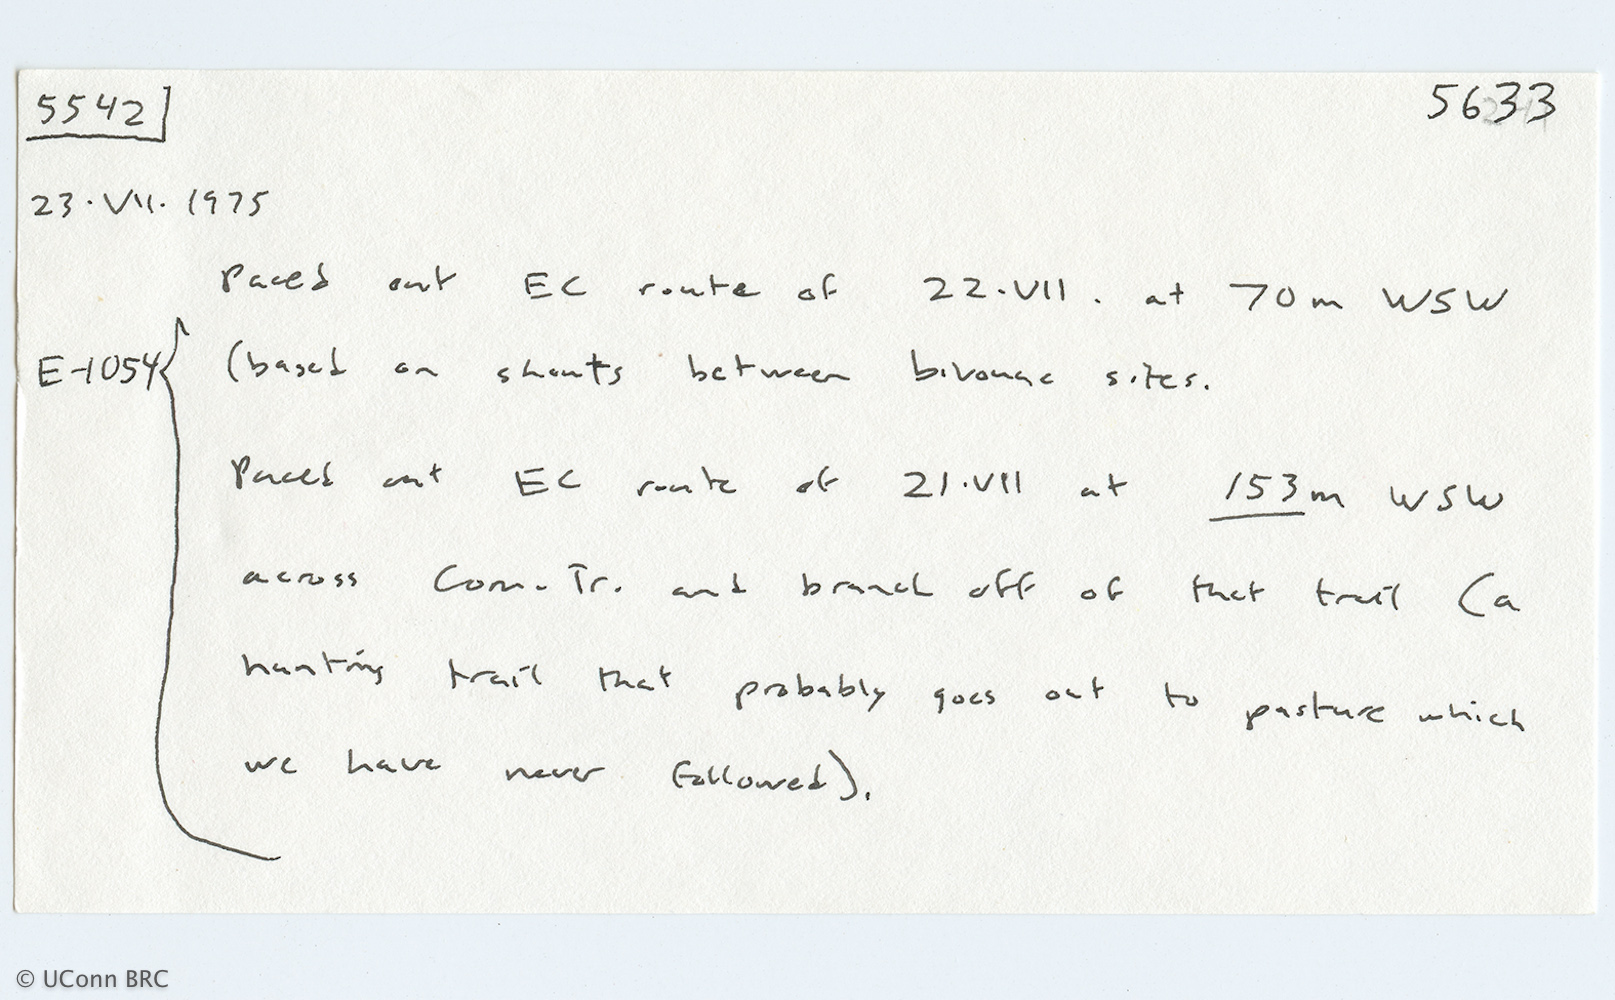 5542 5633
23.VII.1975
Paced out EC route of 22.VII. at 70m WSW
E-1054 (based on shouts between bivouac sites.
Paced out EC route of 21.VII at 153m WSW
across Conn. Tr. and branch off of that trail (a
hunting trail that probably goes out to pasture which
we have never followed).
© UConn BRC